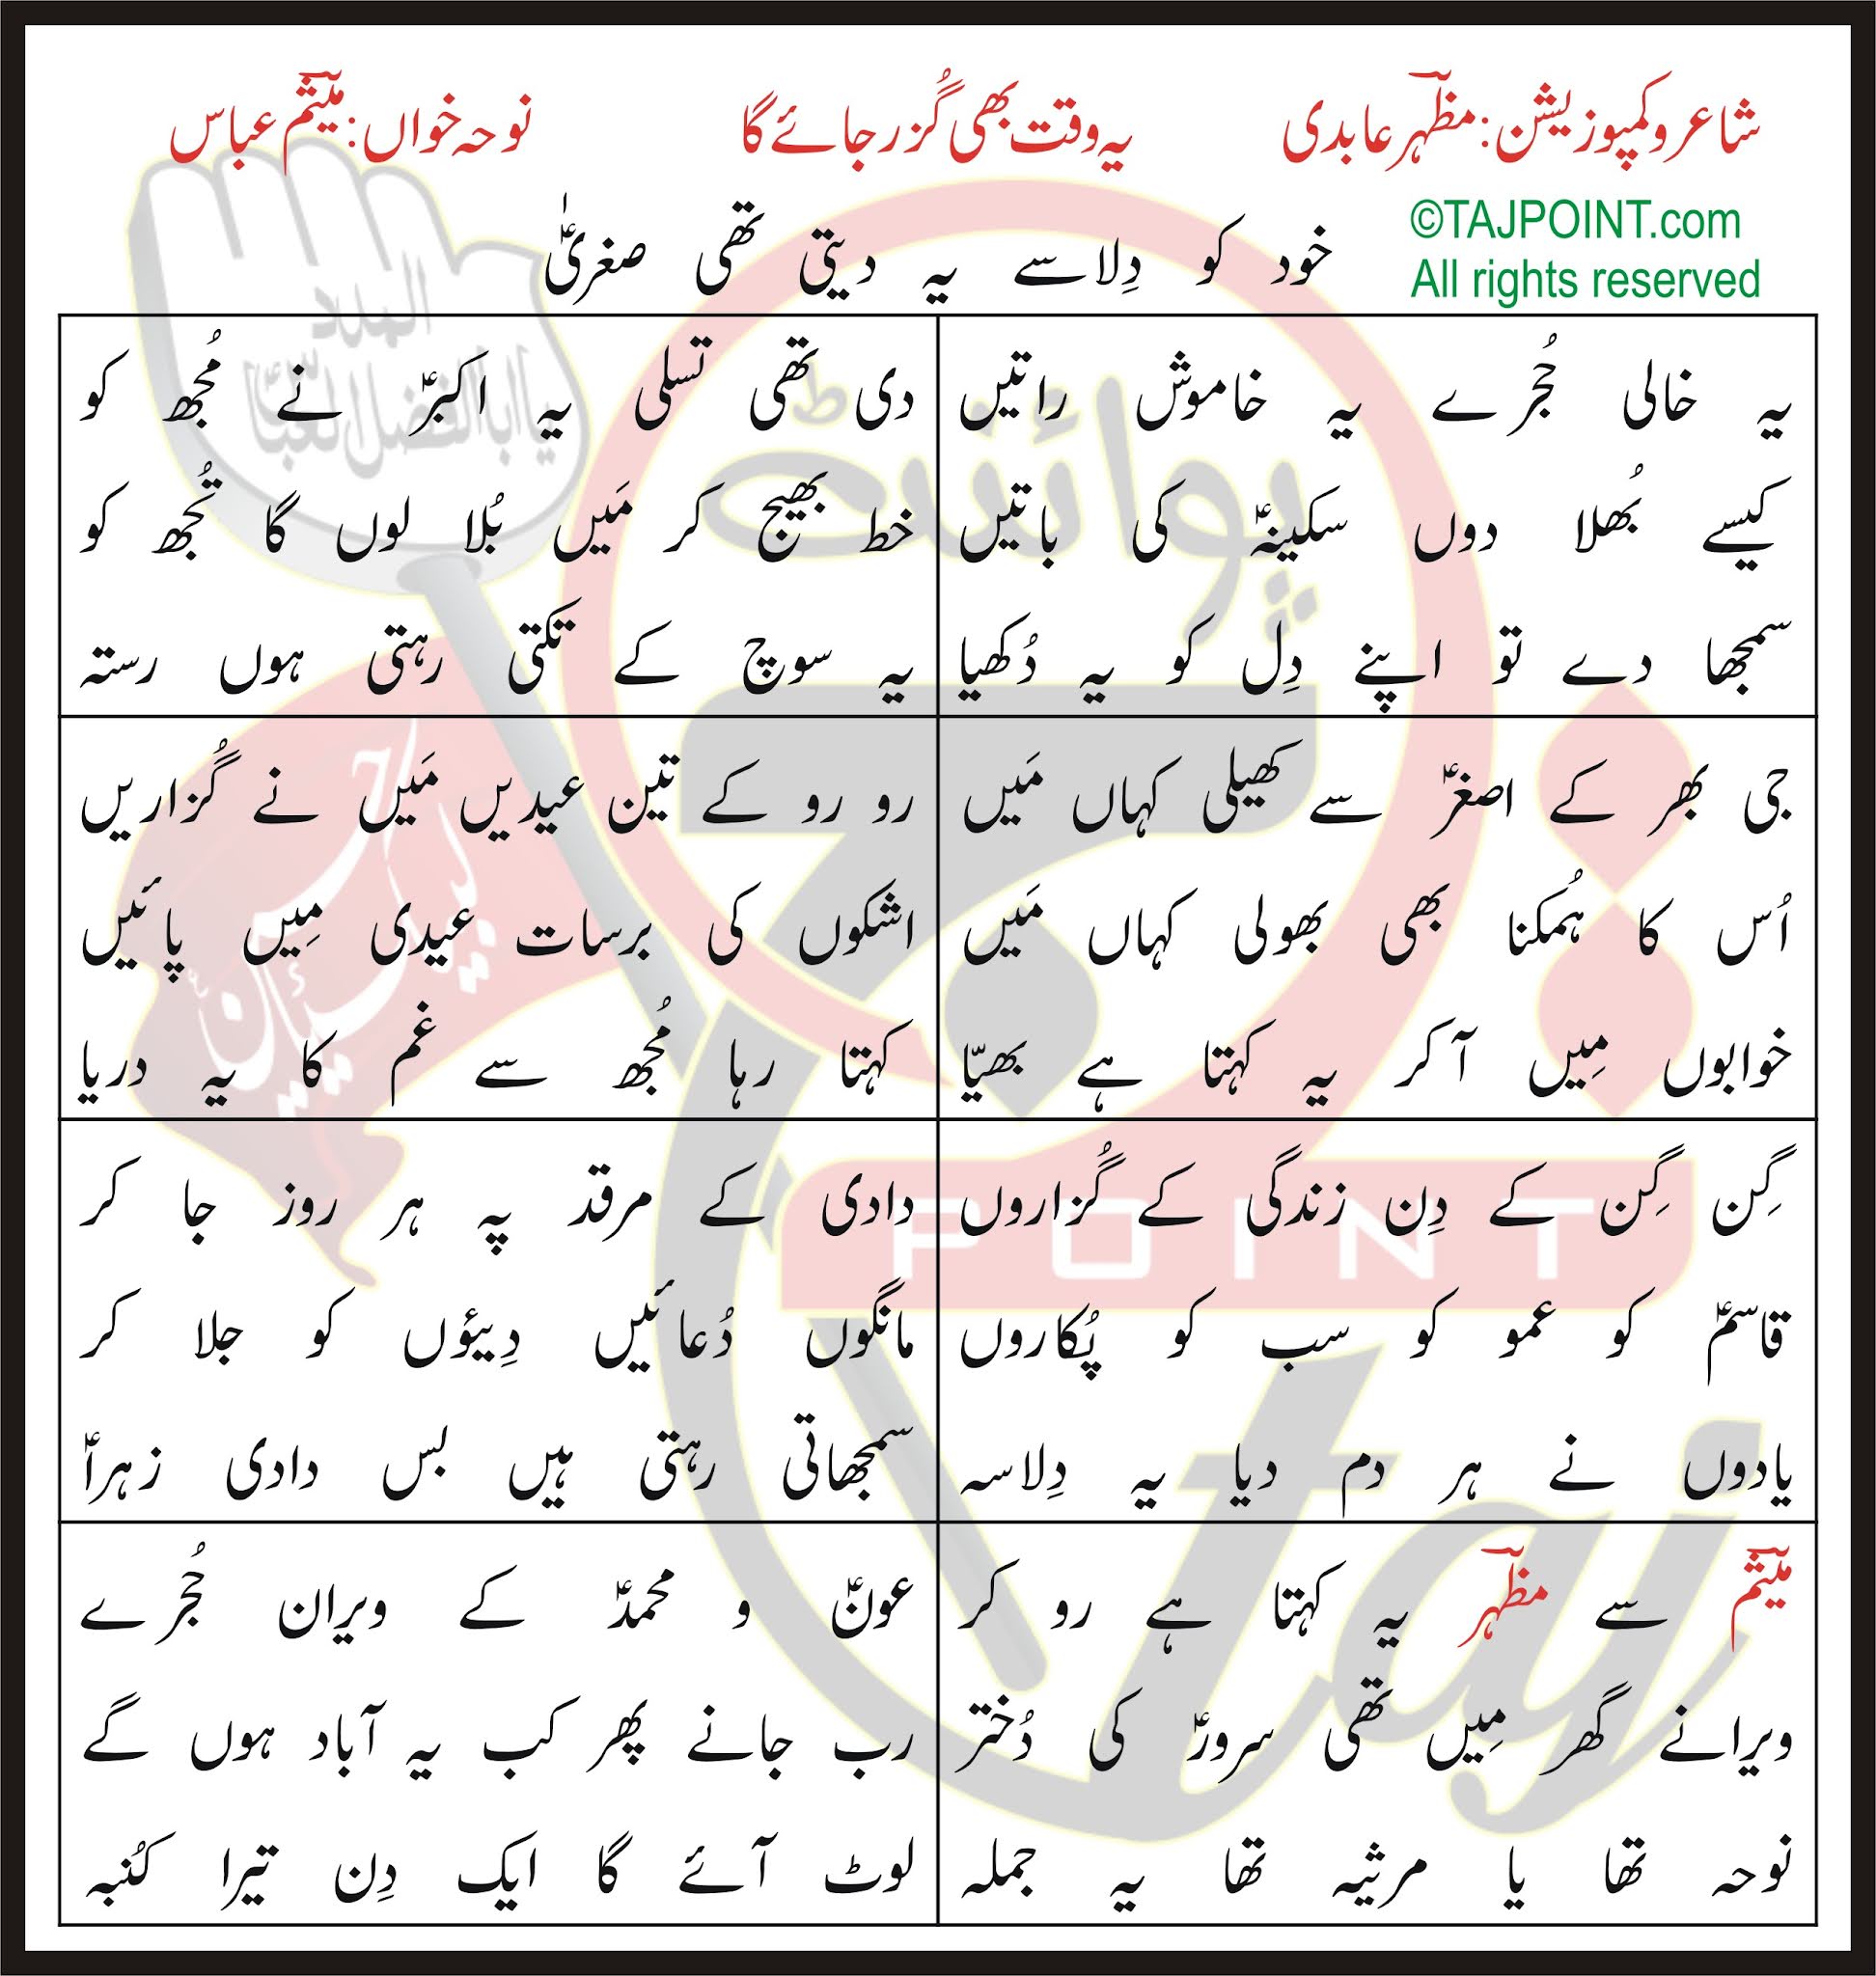 شاعر و کمپوزیشن: مظہر عابدی یہ وقت بھی گُزر جائے گا نوحہ خواں: میثم عباس
©TAJPOINT.com
All rights reserved
خود کو دِلاسے یہ دیتی تھی صغریٰؑ
یہ خالی حُجرے یہ خاموش راتیں
کیسے بُھلا دوں سکینہؑ کی باتیں
سمجھا دے تو اپنے دِل کو یہ دُکھیا
دی تھی تسلی یہ اکبرؑ نے مُجھ کو
خط بھیج کر مَیں بُلا لوں گا تُجھ کو
یہ سوچ کے تکتی رہتی ہوں رستہ
جی بھر کے اصغرؑ سے کھیلی کہاں مَیں
اُس کا ہُمکنا بھی بھولی کہاں مَیں
خوابوں مِیں آ کر یہ کہتا ہے بھیّا
رو رو کے تین عیدیں مَیں نے گُزاریں
اشکوں کی برسات عیدی مِیں پائیں
کہتا رہا مُجھ سے غم کا یہ دریا
گِن گِن کے دِن زندگی کے گُزاروں
قاسمؑ کو عمو کو سب کو پُکاروں
یادوں نے ہر دم دیا یہ دِلاسہ
دادی کے مرقد پہ ہر روز جا کر
مانگوں دُعائیں دِیئوں کو جلا کر
سمجھاتی رہتی ہیں بس دادی زہراؑ
میثم سے مظہر یہ کہتا ہے رو کر
ویرانے گھر مِیں تھی سرورؑ کی دُختر
نوحہ تھا یا مرثیہ تھا یہ جملہ
عونؑ و محمدؑ کے ویران حُجرے
رب جانے پھر کب یہ آباد ہوں گے
لوٹ آئے گا ایک دِن تیرا کُنبہ
پوائنٹ
POINT
taj